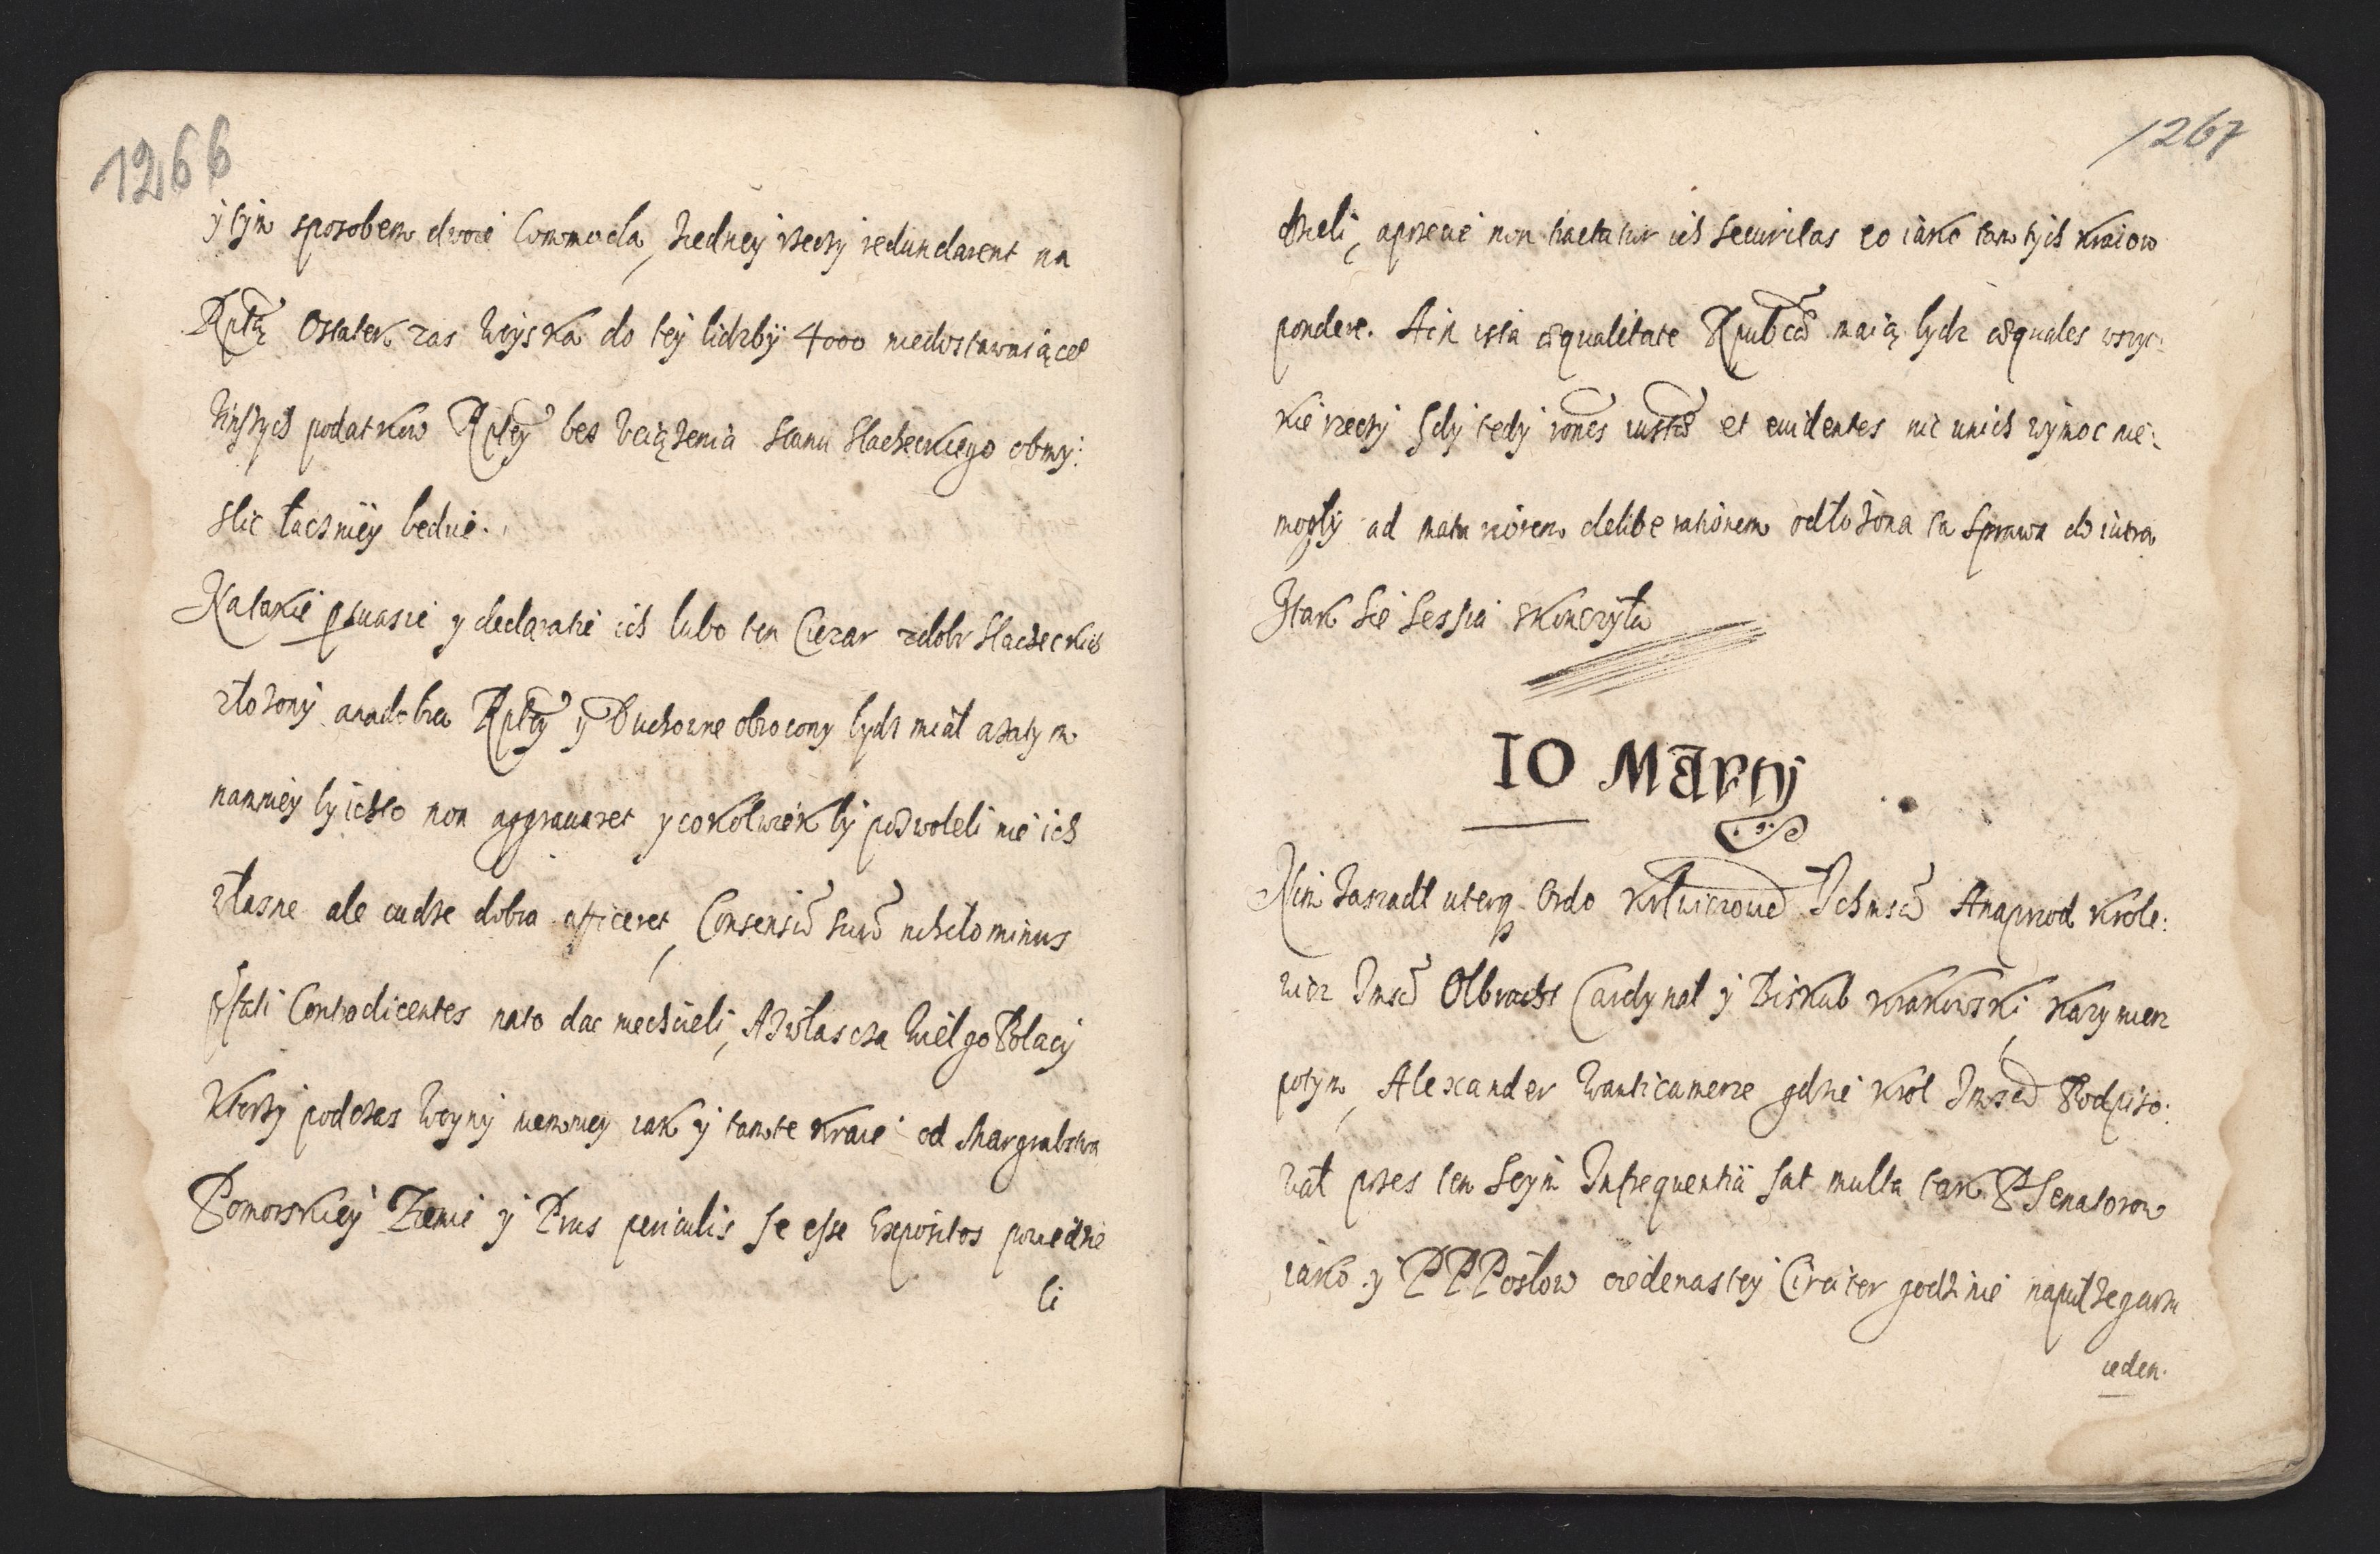 1266
y tym sposobem dwoie Commoda, z iedney rzeczy redundarent na
Rptą Ostatek zas Woyska do tey lidzby 4000 niedostawaiącey
z inszych podatkow Rptey bez vciązenia Stanu Slacheckiego obmy:
slic łacniey bedzie.
Na takie psuasie y declaratie ich lubo ten Ciezar z dobr Slacheckich
złozony a na dobra Rptey y Duchowne obrocony bydz miał a zatym
namniey by ich to non aggrauaret y cokolwiek by pozwoleli nie ich
własne ale cudze dobra afficeret, Consensu suo nihilominus
pstali Contradicentes na to dac niechcieli, A zwłascza Wielgo Polacy
Ktorzy podczas Woyny niemniey iak y tamte kraie od Margrabstwa
Pomorskiey Ziemie y Prus periculis se esse Expositos powiedzie
li
1267
dzieli, a przecie non tractatur ich securitas co iako tamtych kraiow
pondere. A in ista æqualitate Rpubca maią bydz æquales wszyt:
kie rzeczy Gdy tedy rones iustæ et euidentes nic u nich wymoc nie:
mogły ad maturiorem deliberationem odłozona ta Sprawa do iutra
I tak sie Sessia skonczyła
10 Martij
Nim zasiadł uterq Ordo Krolwicowie Ichmsc A naprzod Krole:
wicz Jmsc Olbracht Cardynał y Biskub Krakowski, Kazymierz
potym, Alexander W anticamerze gdzie Krol Jmsc Podpiso:
wał przes ten Seym In frequentia sat multa tak PP Senatorow
iako y PPPosłow o iedenastey Circiter godzinie na puł zegarzu
ieden.